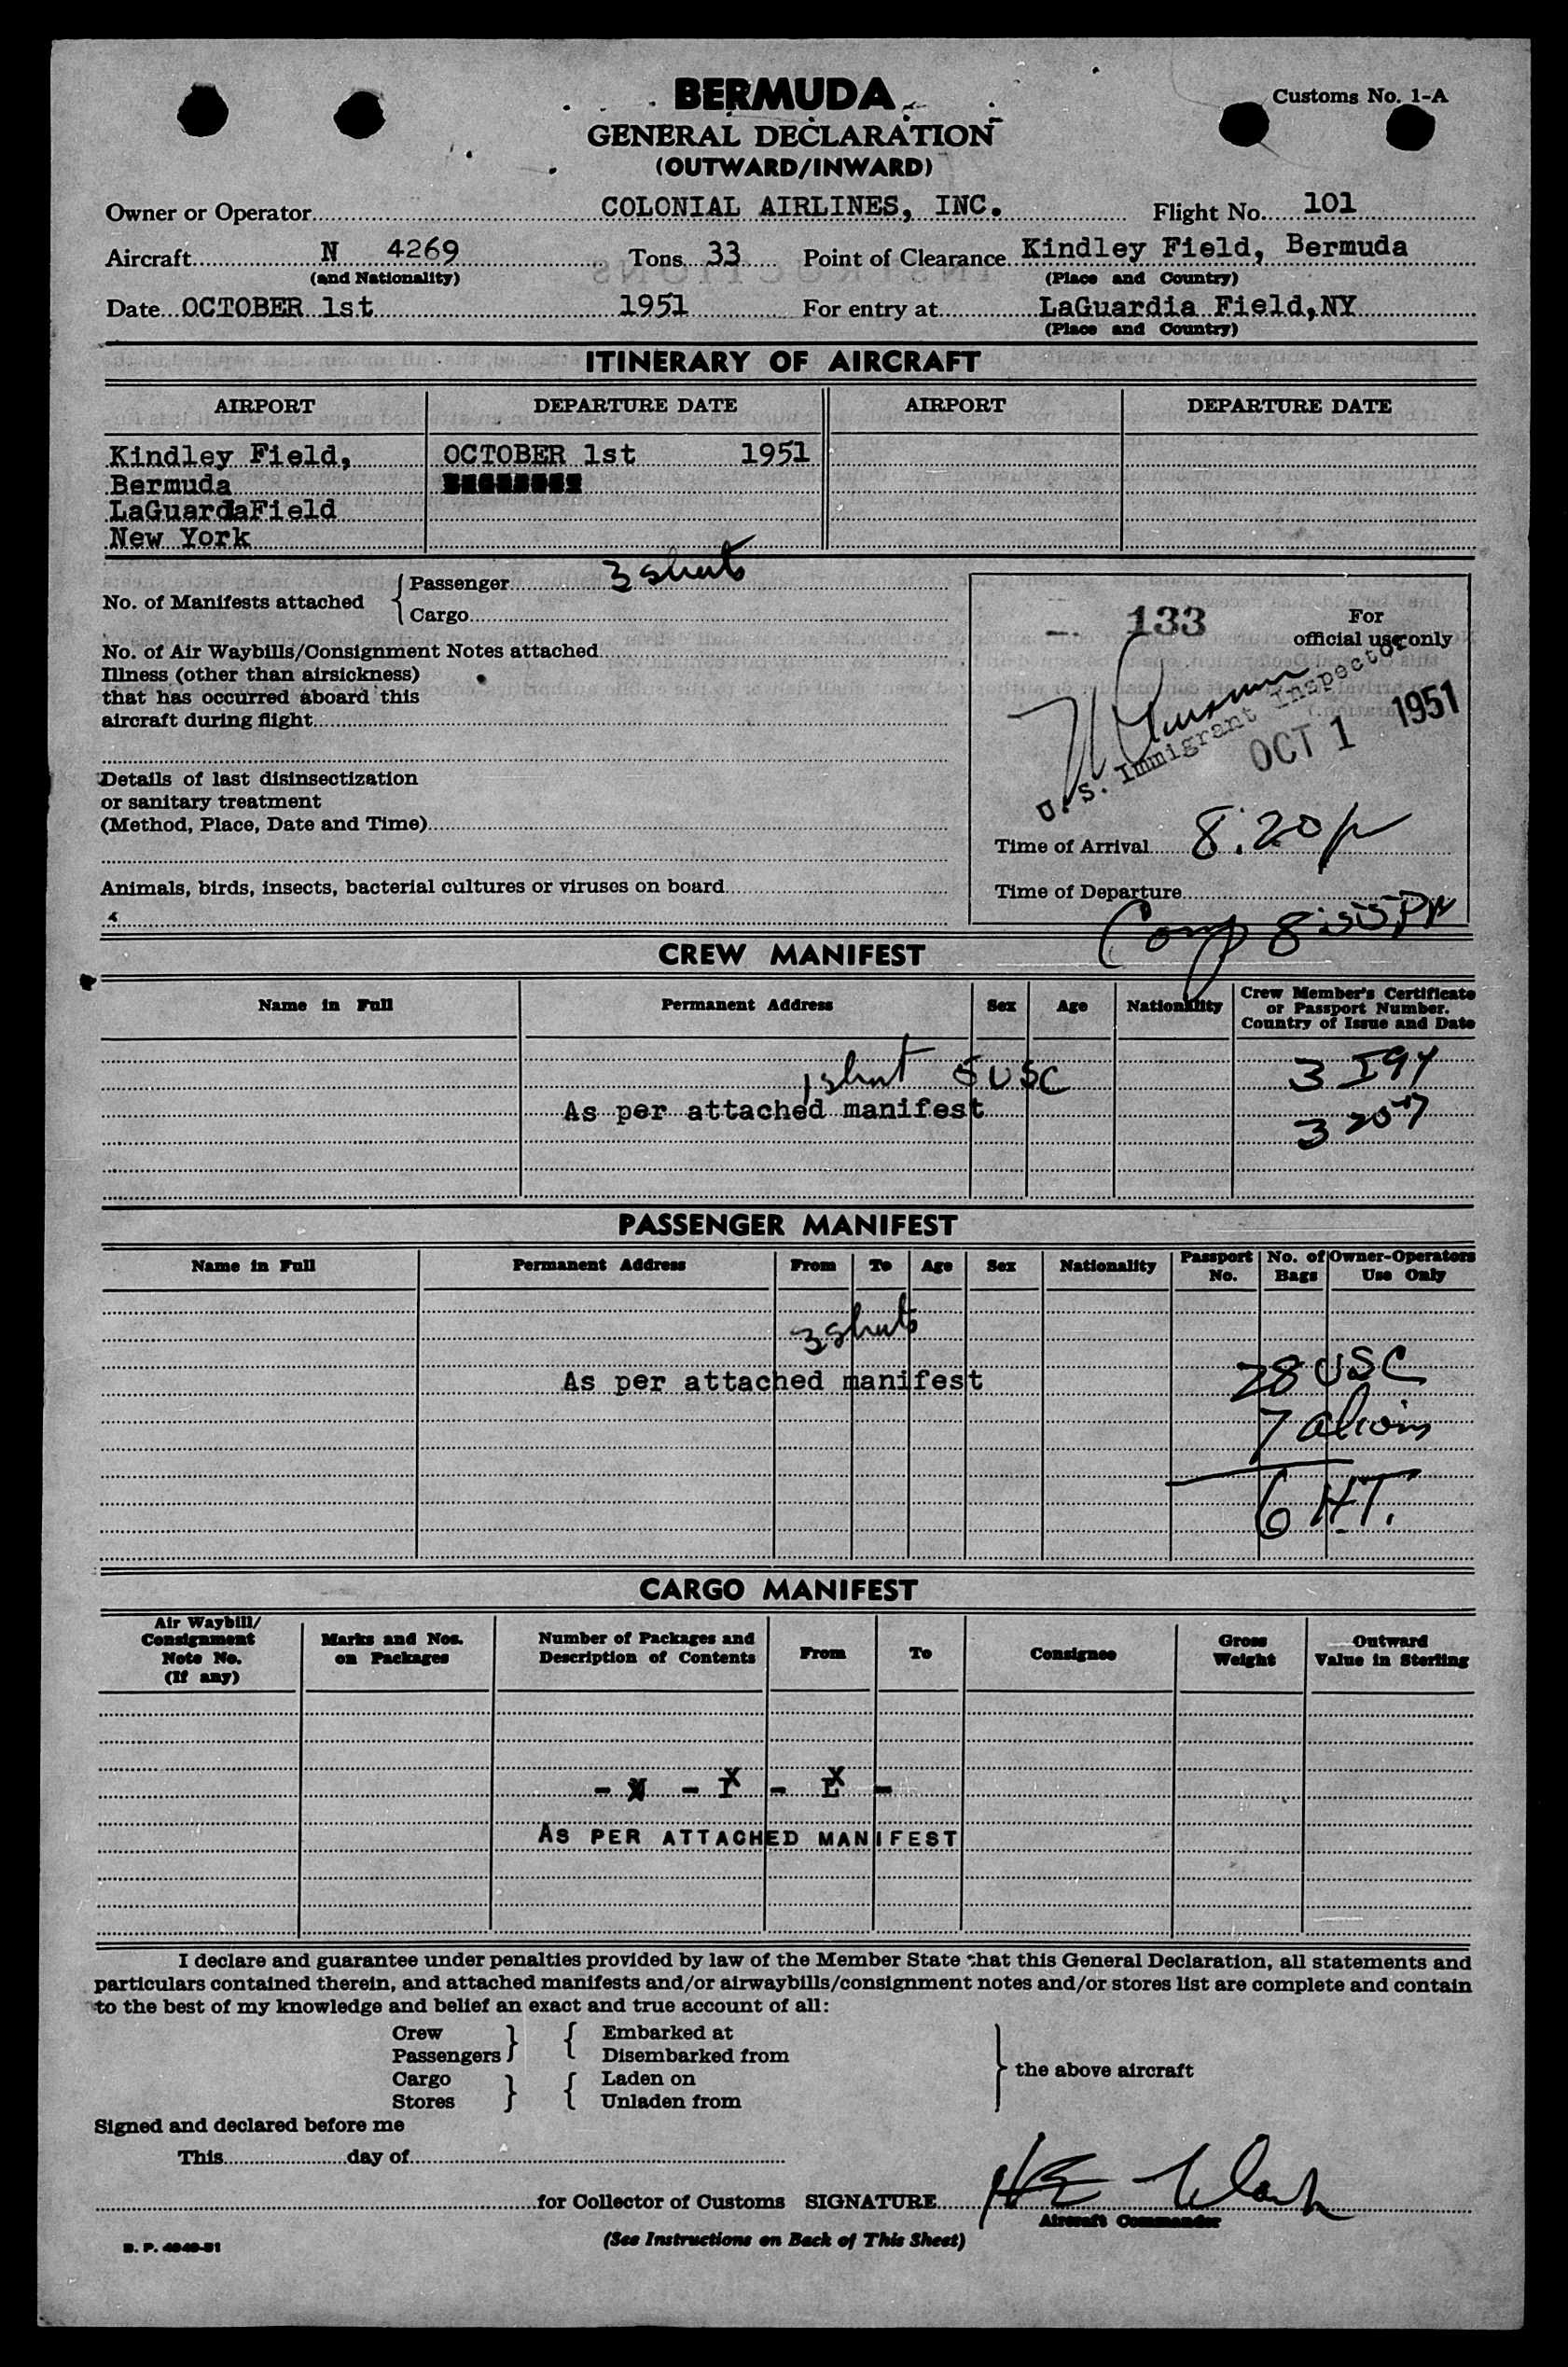 BERMUDA
Customs No. 1-A
GENERAL DECLARATION
(OUTWARD/INWARD)
Owner or Operator COLONIAL AIRLINES, INC. Flight No. 101
Aircraft N 4269 Tons 33 Point of Clearance Kindley Field, Bermuda
(and Nationality) (Place and Country)
Date OCTOBER 1st 1951 For entry at LaGuardia Field,NY
(Place and Country)
ITINERARY OF AIRCRAFT
AIRPORT DEPARTURE DATE AIRPORT DEPARTURE DATE
Kindley Field, OCTOBER 1st 1951
Bermuda
LaGuardiaField
New York
No. of Manifests attached
Passenger 3 sheets
Cargo
No. of Air Waybills/Consignment Notes attached
Illness (other than airsickness)
that has occurred aboard this
aircraft during flight
Details of last disinsectization
or sanitary treatment
(Method, Place, Date and Time)
Animals, birds, insects, bacterial cultures or viruses on board
133
For
official use only
U. S. Immigrant Inspector
OCT 1 1951
Time of Arrival 8:20 p
Time of Departure
Comp 8:55 PM
CREW MANIFEST
Name in Full Permanent Address Sex Age Nationality Crew Member's Certificate
or Passport Number.
Country of Issue and Date
1 sheet 5 USC 3 I94
As per attached manifest
3 257
PASSENGER MANIFEST
Name in Full Permanent Address From To Age Sex Nationality Passport No. No. of Bags Owner-Operators Use Only
3 sheets
As per attached manifest 28 USC
7 aliens
6 H.T.
CARGO MANIFEST
Air Waybill/
Consignment
Note No.
(If any)
Marks and Nos.
on Packages
Number of Packages and
Description of Contents
From To Consignee
Gross
Weight
Outward
Value in Sterling
AS PER ATTACHED MANIFEST
I declare and guarantee under penalties provided by law of the Member State that this General Declaration, all statements and
particulars contained therein, and attached manifests and/or airwaybills/consignment notes and/or stores list are complete and contain
to the best of my knowledge and belief an exact and true account of all:
Crew Embarked at
Passengers Disembarked from
the above aircraft
Cargo Laden on
Stores Unladen from
Signed and declared before me
This day of
for Collector of Customs SIGNATURE
Aircraft Commander
(See Instructions on Back of This Sheet)